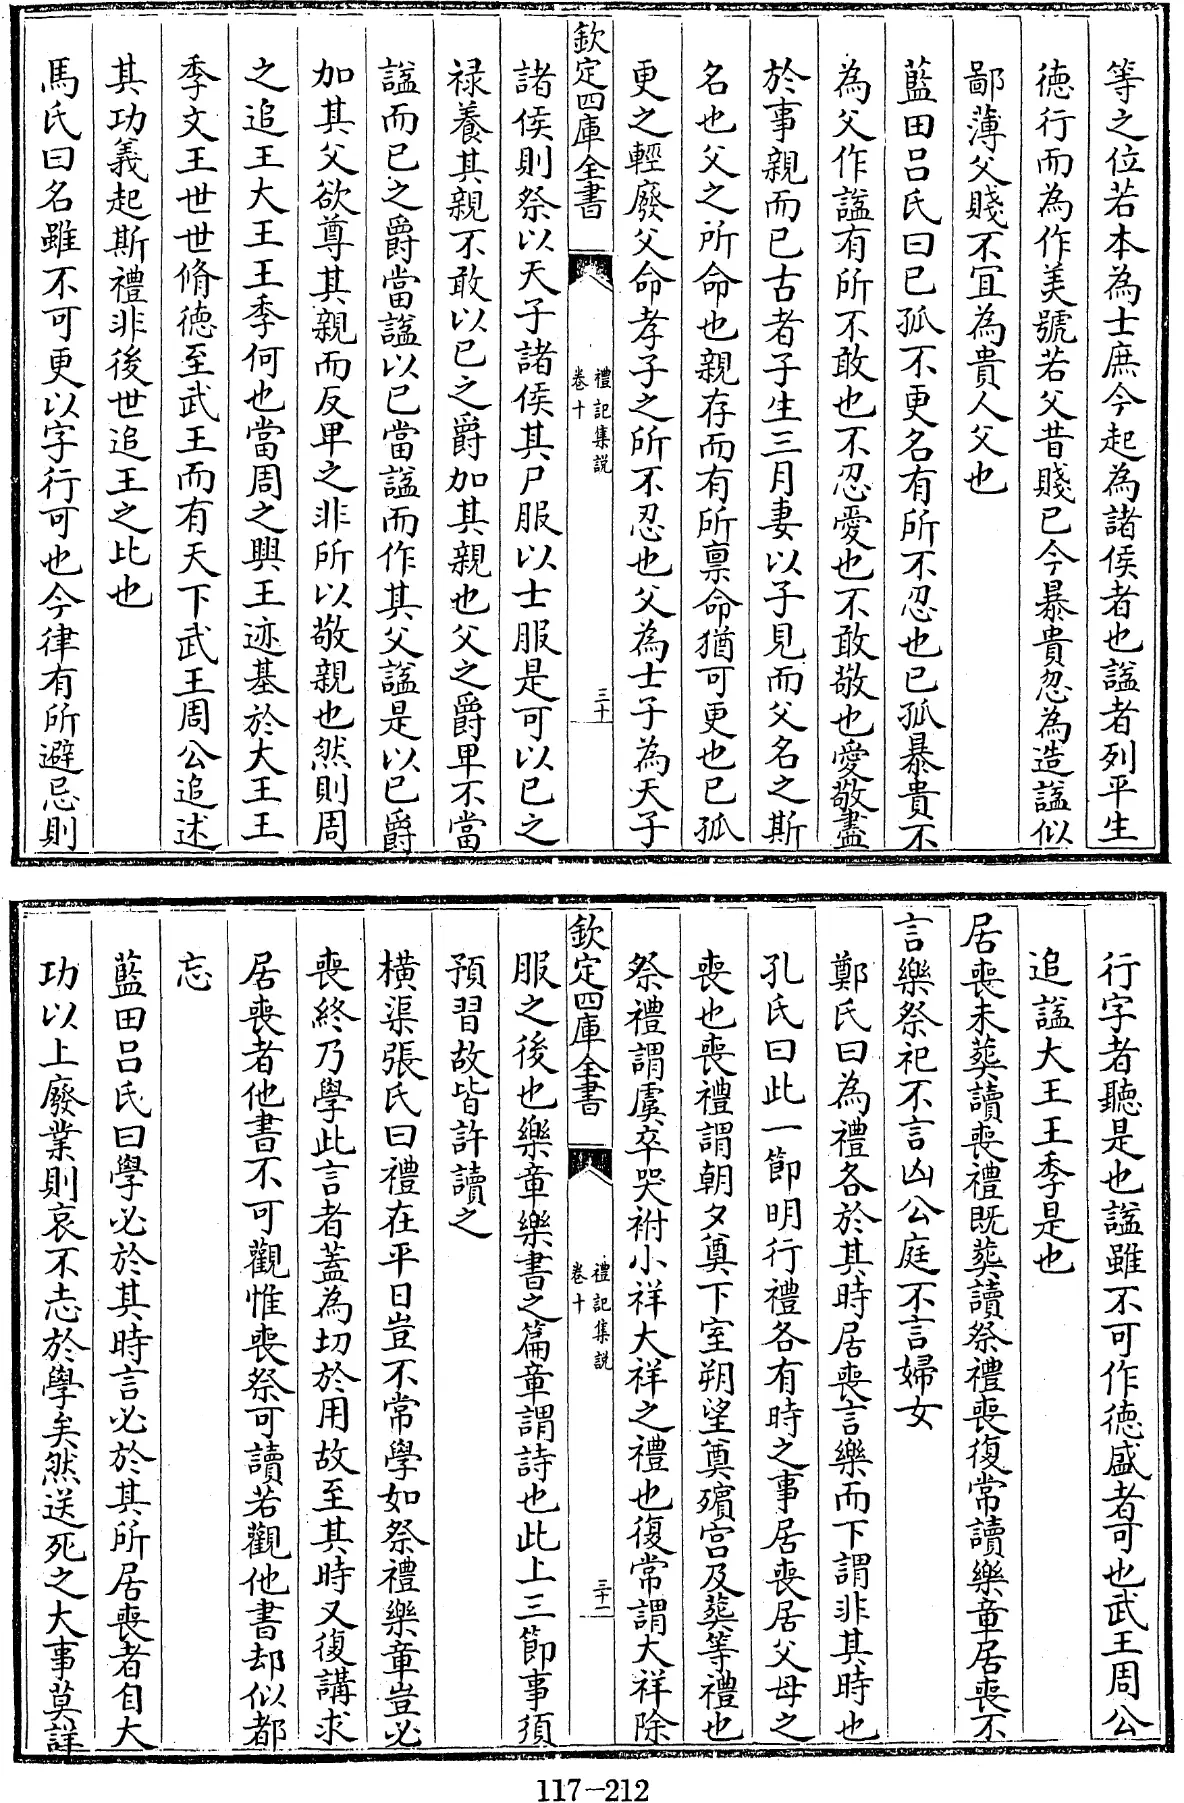 等之位若本為士庶今起為諸侯者也諡者列平生
徳行而為作美號若父昔賤已今暴貴忽為造諡似
鄙薄父賤不宜為貴人父也
藍田吕氏曰已孤不更名有所不忍也已孤暴貴不
為父作諡有所不敢也不忍愛也不敢敬也愛敬盡
於事親而已古者子生三月妻以子見而父名之斯
名也父之所命也親存而有所禀命猶可更也已孤
更之輕廢父命孝子之所不忍也父為士子為天子
欽定四庫全書
禮記集説
卷十
三十
諸侯則祭以天子諸侯其尸服以士服是可以已之
禄養其親不敢以已之爵加其親也父之爵卑不當
諡而已之爵當諡以已當諡而作其父諡是以已爵
加其父欲尊其親而反卑之非所以敬親也然則周
之追王大王王季何也當周之興王迹基於大王王
季文王世世脩徳至武王而有天下武王周公追述
其功義起斯禮非後世追王之比也
馬氏曰名雖不可更以字行可也今律有所避忌則
行字者聽是也諡雖不可作徳盛者可也武王周公
追諡大王王季是也
居喪未葬讀喪禮既葬讀祭禮喪復常讀樂章居喪不
言樂祭祀不言凶公庭不言婦女
鄭氏曰為禮各於其時居喪言樂而下謂非其時也
孔氏曰此一節明行禮各有時之事居喪居父母之
喪也喪禮謂朝夕奠下室朔望奠殯宫及葬等禮也
祭禮謂虞卒哭祔小祥大祥之禮也復常謂大祥除
欽定四庫全書
禮記集説
卷十
三十一
服之後也樂章樂書之篇章謂詩也此上三節事須
預習故皆許讀之
横渠張氏曰禮在平日豈不常學如祭禮樂章豈必
喪終乃學此言者蓋為切於用故至其時又復講求
居喪者他書不可觀惟喪祭可讀若觀他書却似都
忘
藍田吕氏曰學必於其時言必於其所居喪者自大
功以上廢業則哀不志於學矣然送死之大事莫詳
117-212